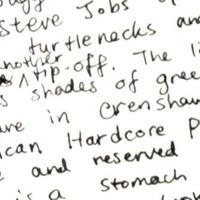 Steve Jobs
turtlenecks an
another
tip-off. The li
shades of gree
in Crenshaw
ican Hardcore P
and reserved
is a stomach